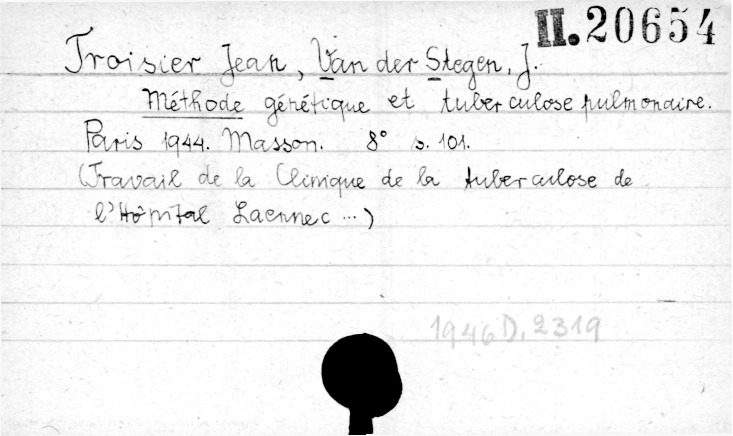 II. 20654
Troisier Jean, Van der Stegen, J.
Méthode génétique et tuberculose pulmonaire.
Paris 1944. Masson. 8° s. 101.
(Travail de la Clinique de la tuberculose de
l'Hôpital Laennec ...)
1946 D. 2319